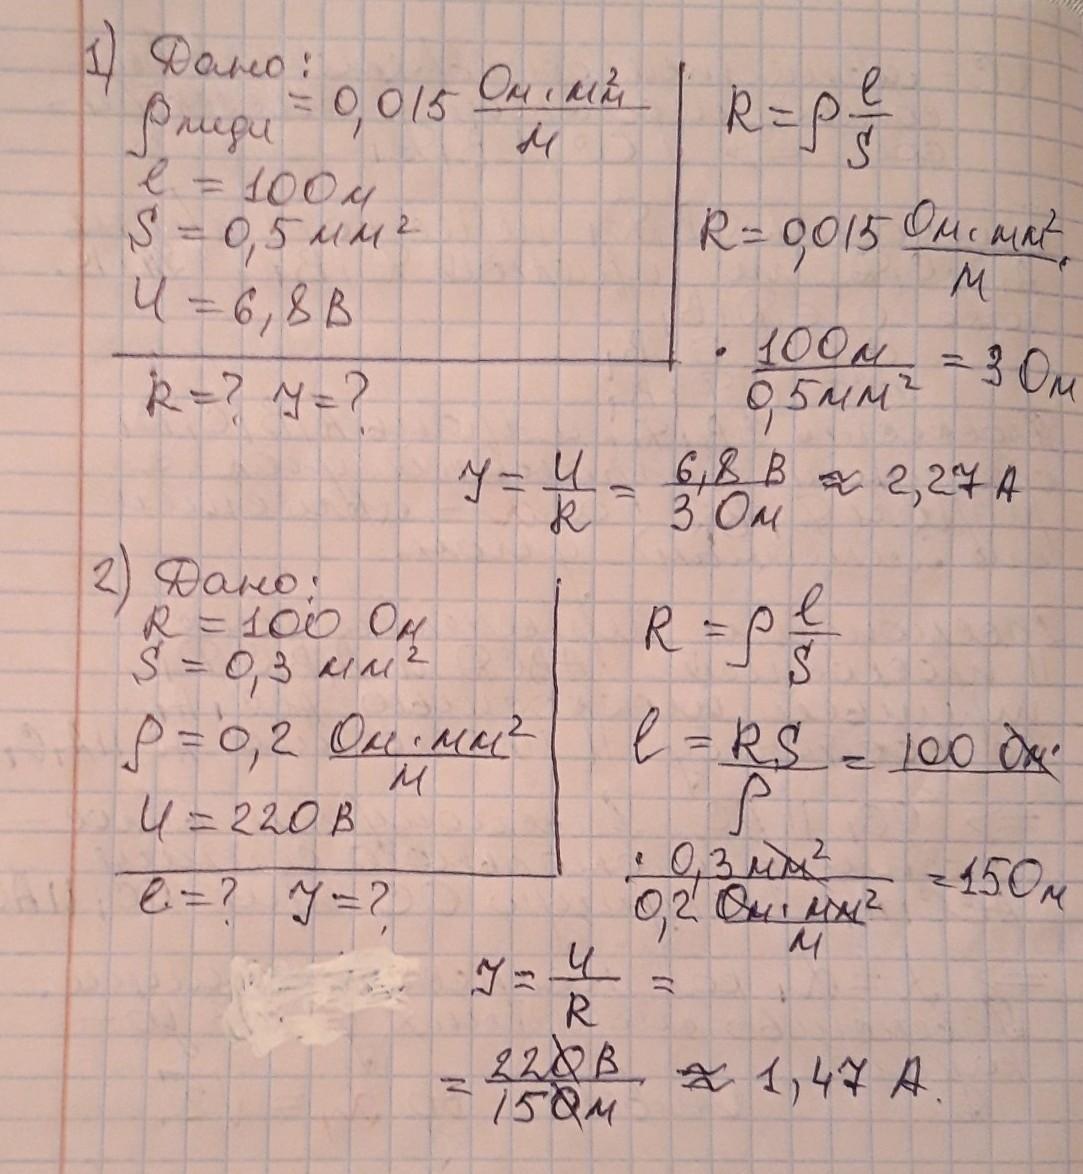 1) Дано:
ρ меди = 0,015 Ом·мм²/м
l = 100м
S = 0,5 мм²
U = 6,8 В
R = ? I = ?
R = ρ l/S
R = 0,015 Ом·мм²/м ·
· 100м/0,5мм² = 3 Ом
I = U/R = 6,8 В/3 Ом ≈ 2,27 А
2) Дано:
R = 100 Ом
S = 0,3 мм²
ρ = 0,2 Ом·мм²/м
U = 220 В
l = ? I = ?
R = ρ l/S
l = RS/ρ = 100 Ом·
· 0,3 мм²/0,2 Ом·мм²/м = 150м
I = U/R =
= 220 В/150м ≈ 1,47 А.